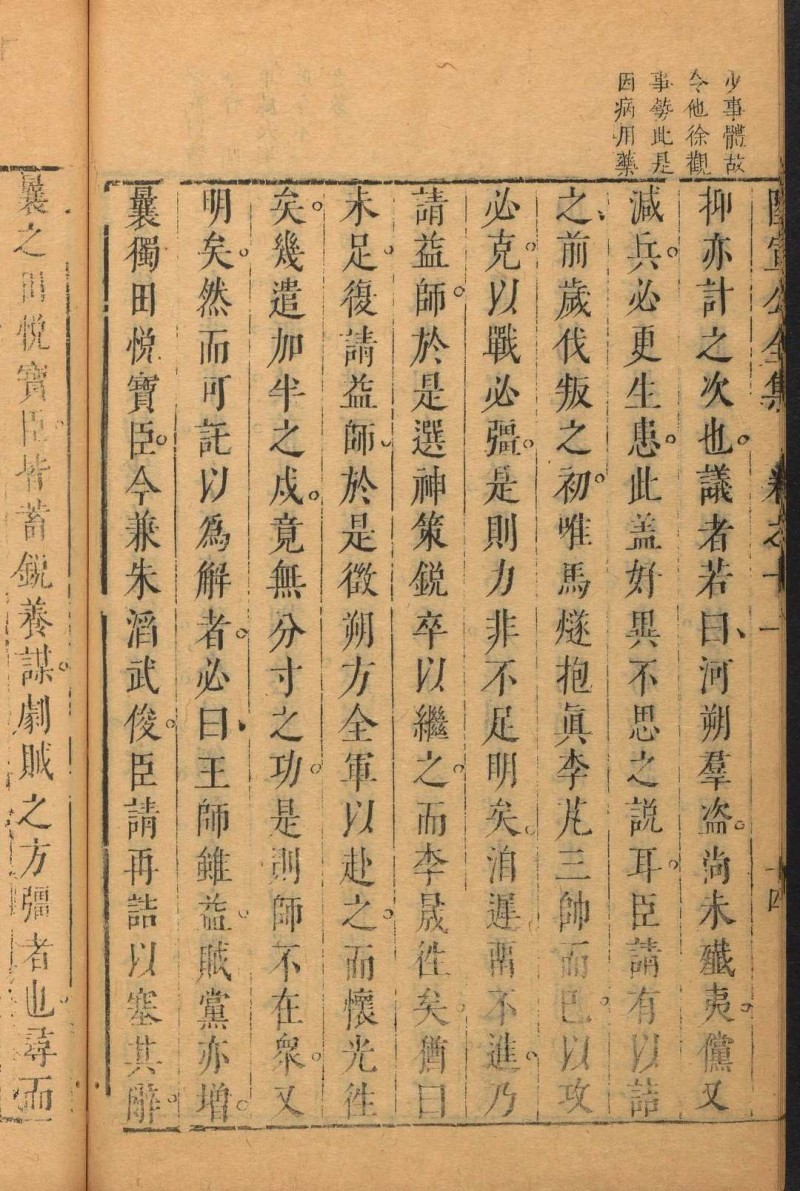 少事體故
令他徐觀
事勢此是
因病用藥
陸宣公全集 卷之十一 十四
抑亦計之次也議者若曰河朔羣盗尚未殲夷儻又
減兵必更生患此盖好異不思之說耳臣請有以詰
之前歲伐叛之初唯馬燧抱眞李芃三帥而已以攻
必克以戰必彊是則力非不足明矣洎遲畱不進乃
請益師於是選神策銳卒以繼之而李晟徃矣猶曰
未足復請益師於是徵朔方全軍以赴之而懷光徃
矣幾遣加半之戍竟無分寸之功是則師不在衆又
明矣然而可託以爲解者必曰王師雖益賊黨亦增
曩獨田悅寶臣今兼朱滔武俊臣請再詰以塞其辭
曩之田悅寶臣皆蓄銳養謀劇賊之方彊者也尋而